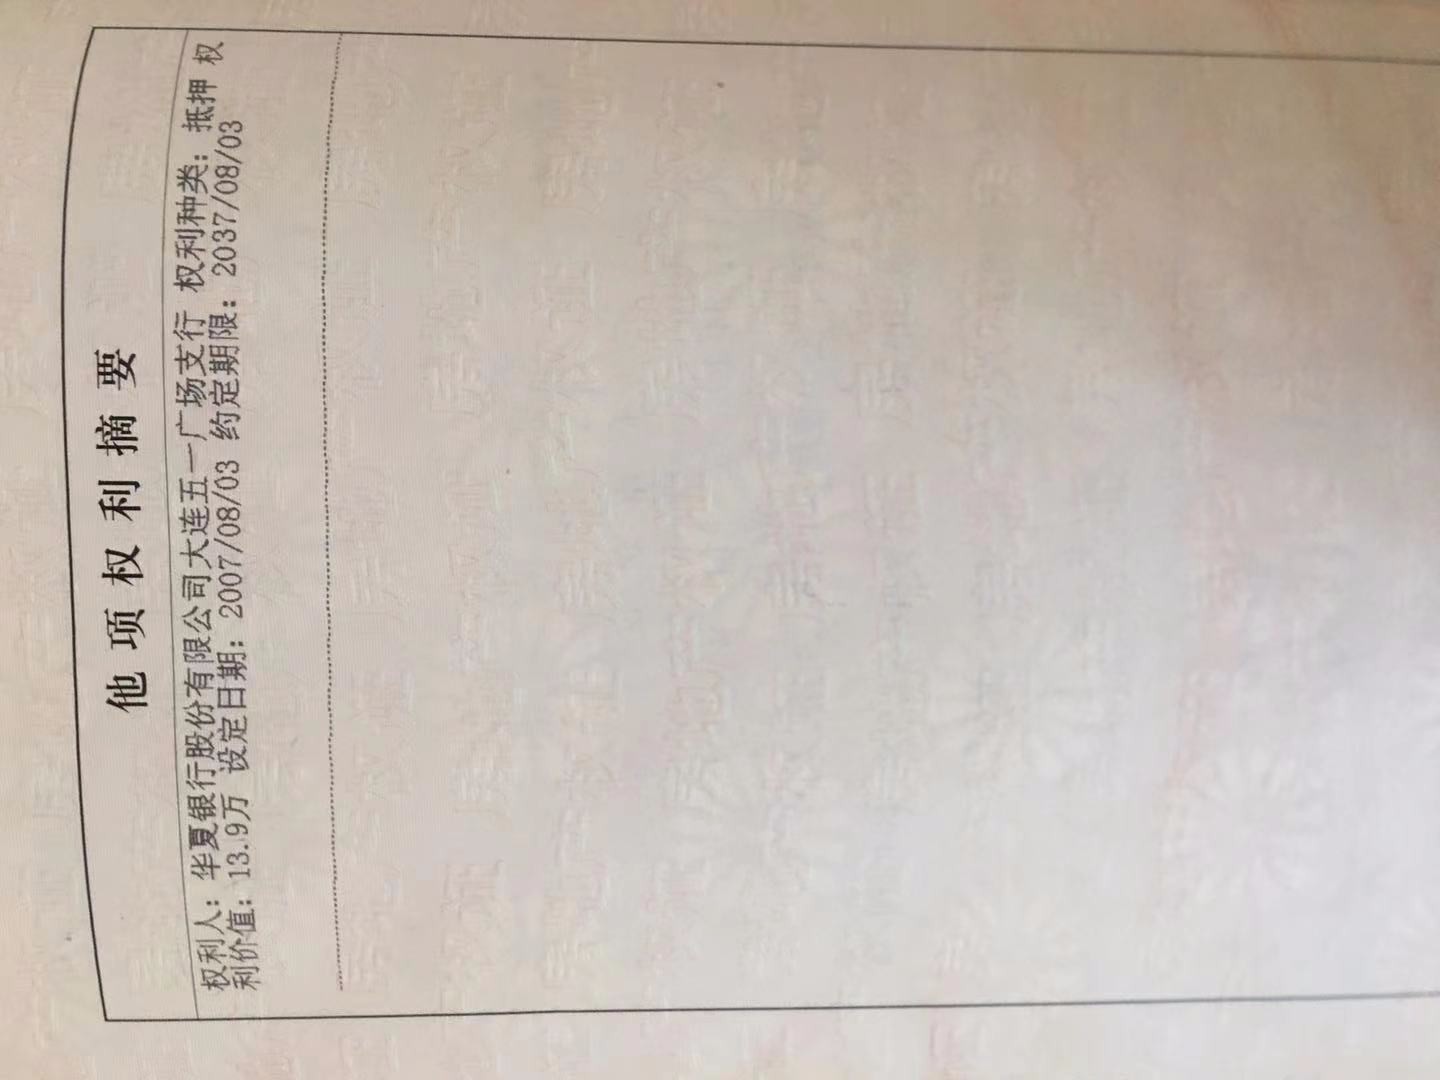 他项权利摘要
权利人：华夏银行股份有限公司大连五一广场支行 权利种类：抵押 权
利价值：13.9万 设定日期：2007/08/03 约定期限：2037/08/03